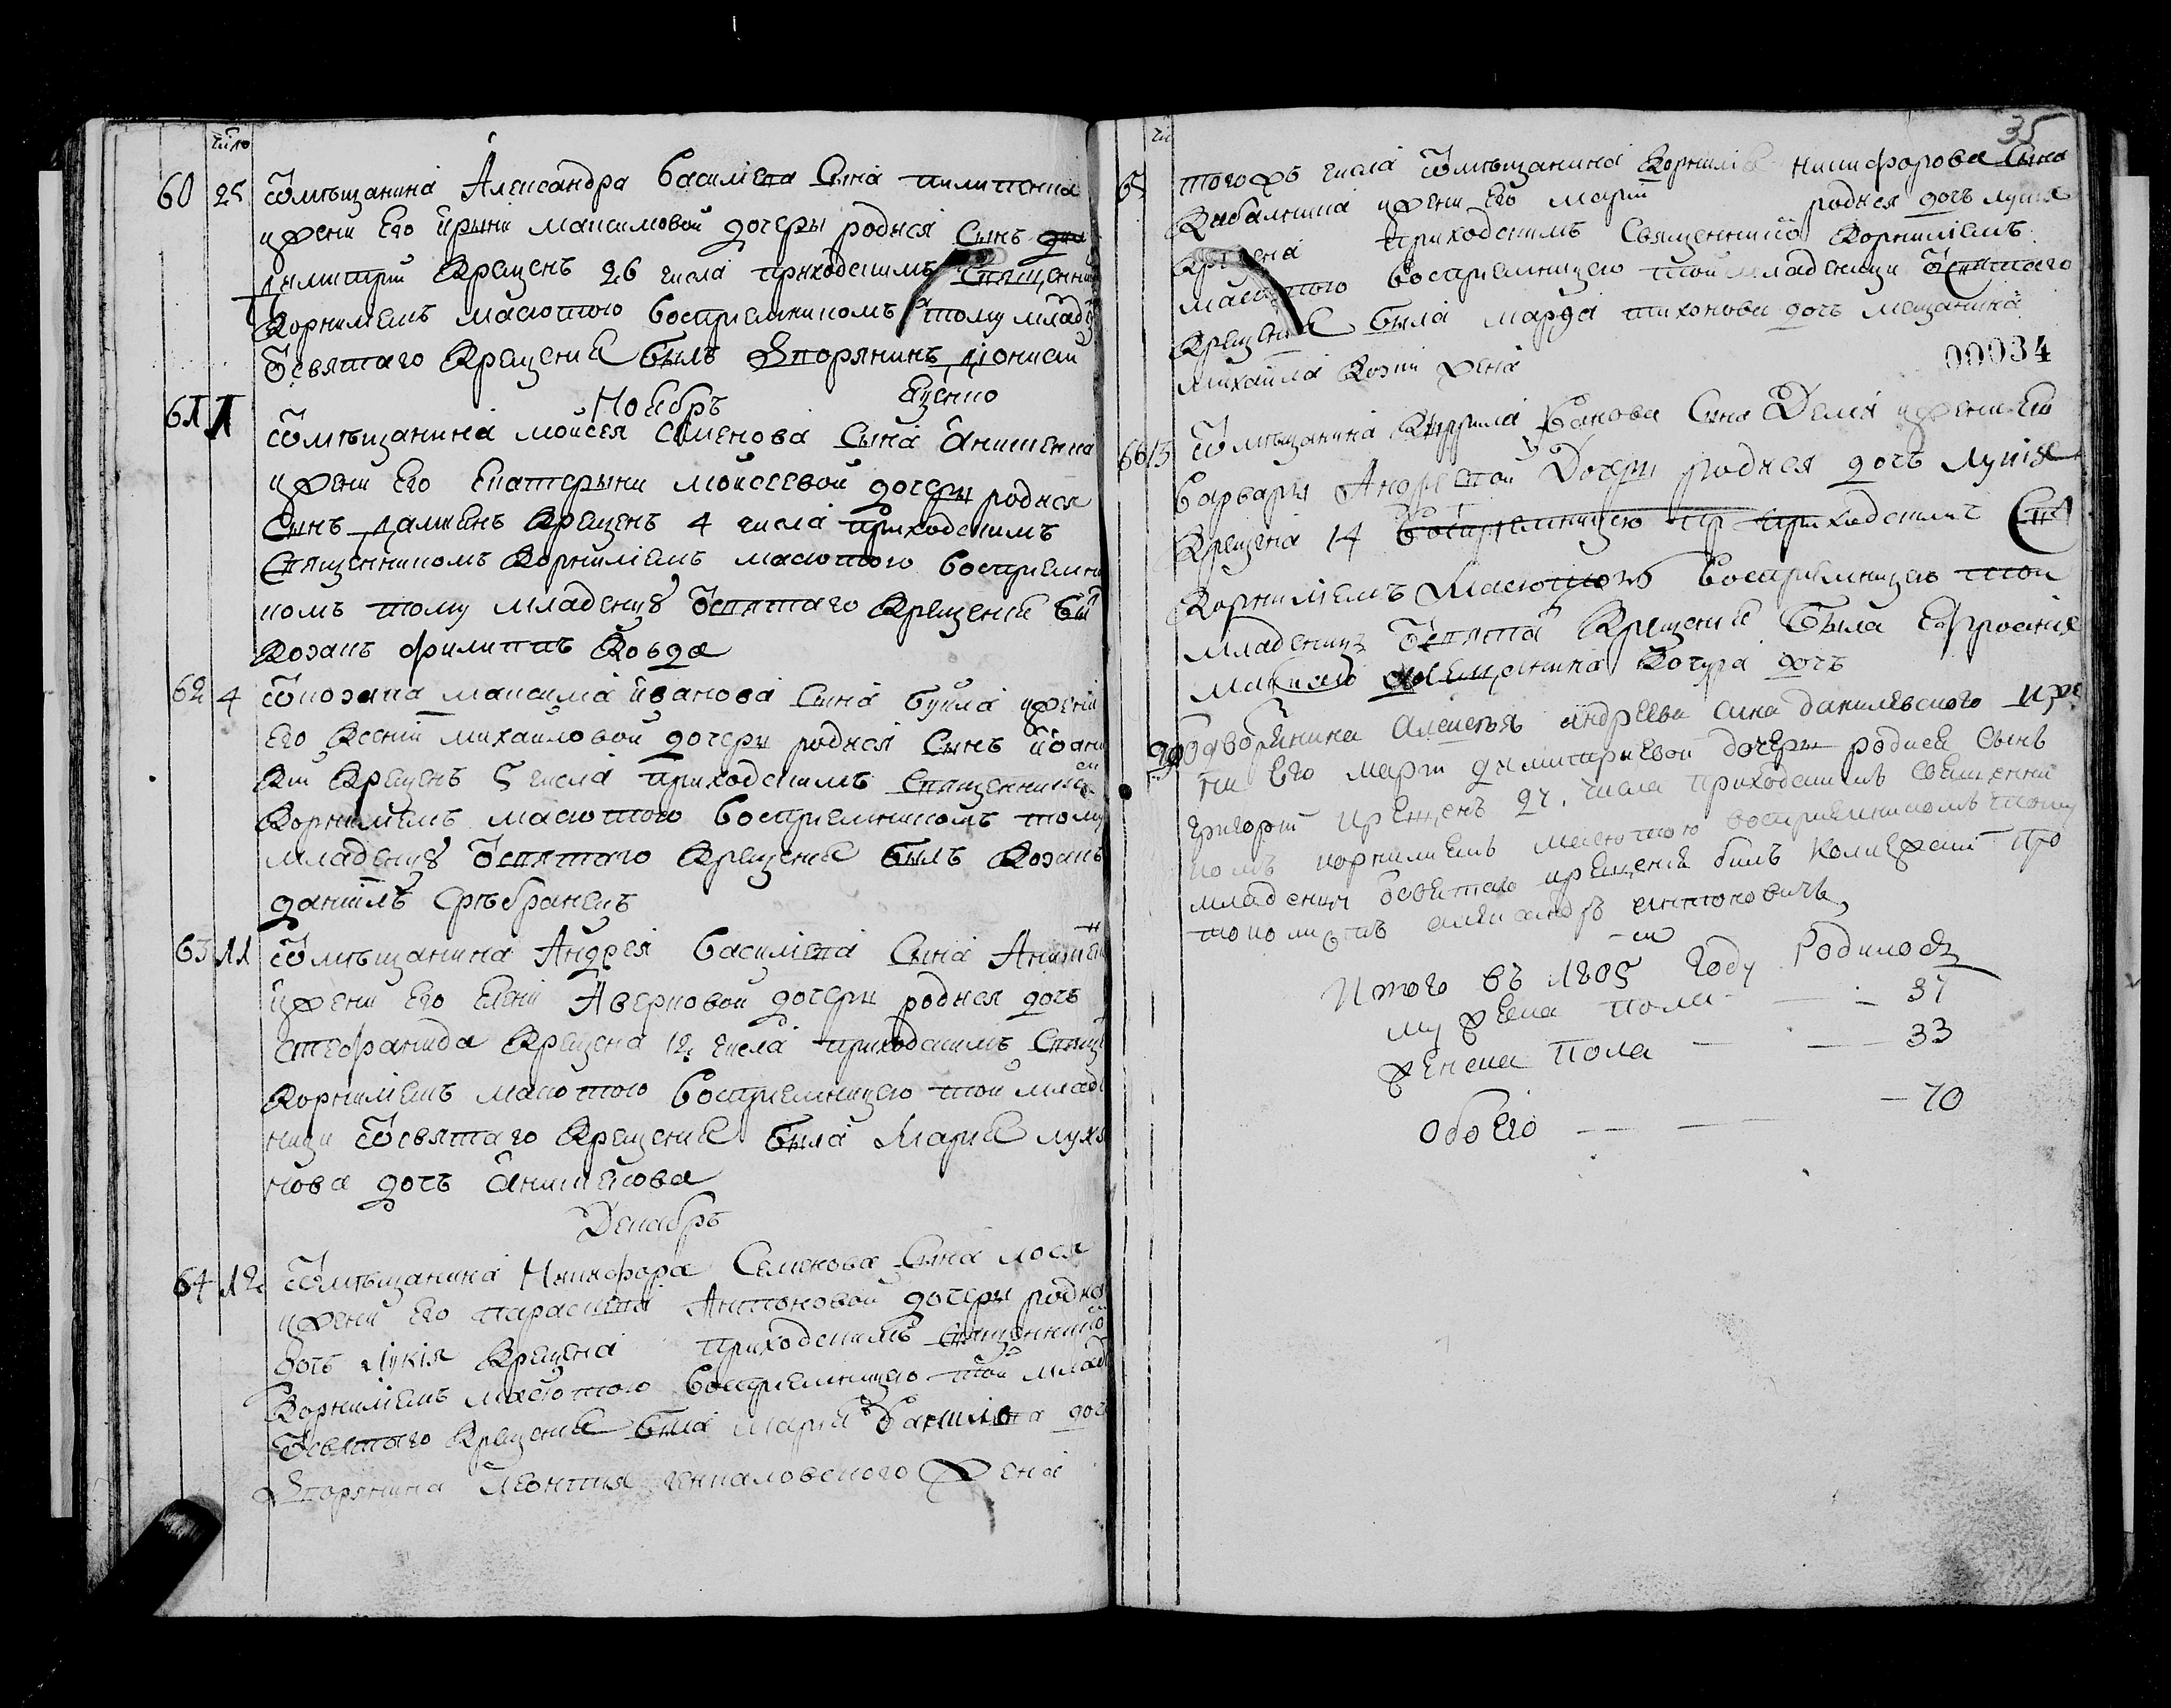 число
60 25 Ѿ мѣщанина Александра Василіева Сина пилипенка
и жени Его Ирыни максимовой дочеры родися Сынъ
димитрий Крещенъ 26 числа приходскимъ Священни
Корнилиемъ масютою восприемникомъ тому млад
ѿ святаго Крещения былъ дворянинъ дионисий
Ноябрь
Яценко
61 1 Ѿ мѣщанина моисея Семенова Сына Анищенка
и жени Его Екатерыни Моисеевой дочеры родися
Сынъ дамиенъ Крещенъ 4 числа приходскимъ
Священникомъ Корнилиемъ масютою восприемни
комъ тому младенцу ѿ святаго Крещения бы
Козакъ филиппъ Ковда
62 4 Ѿ козака максима иванова Сына буйла и жени
Его Ксении михайловой дочеры родися Сынъ Иоани
кий Крещенъ 5 числа приходскимъ Священнико
Корнилиемъ масютою восприемникомъ тому
младенцу ѿ святаго Крещения былъ Козакъ
даниилъ Сребранецъ
63 11 Ѿ мѣщанина Андрея Василиева Сина Анищен
и жени Его Елени Аверковой дочеры родися дочъ
стефанида Крещена 12 числа приходскимъ Священ
Корнилиемъ масютою восприемницею той млад
ници ѿ святаго Крещения была Мария лукя
нова дочъ Анищенкова
Декабрь
64 12 Ѿ мѣщанина Никифора Семенова Сина лося
и жени Его параскеви Антоновой дочеры родися
дочъ лукія Крещена приходскимъ Священнико
Корнилиемъ масютою восприемницею той млад
ѿ святаго Крещения была Мария данилова доч
дворянина Леонтия жена
35
чи
65 тогожъ числа Ѿ мѣщанина Корнилия никифорова Сина
Кабалкина и жени Его Марии родися дочъ лукия
Крещена приходскимъ Священнико Корнилиемъ
масютою восприемницею той младеници ѿ святаго
Крещения была марфа тихонова дочъ мещанина
Михаила Козии жена
00034
66 13 Ѿ мѣщанина Кирила Иванова Сина Делея и жени Его
Варвари Андреевой Дочеры родися дочъ лукия
Крещена 14 восприемницею пр приходскимъ Свя
Корнилиемъ Масютою восприемницею той
младеници ѿ свята Крещения была Евфросиния
мещанина Кочура дочъ
ѿ дворянина Алексея андреева сина данилевского и же
ни Его марфи димитриевой дочеры родися сынъ
григорий крещенъ 27. числа приходскимъ священни
комъ корнилиемъ масютою восприемникомъ тому
младенцу ѿ святаго крещения билъ колежский про
токолистъ александръ антоновичъ
Итого въ 1805-м году Родилося
мужеска пола — 37
женска пола — — 33
обоего — — — 70